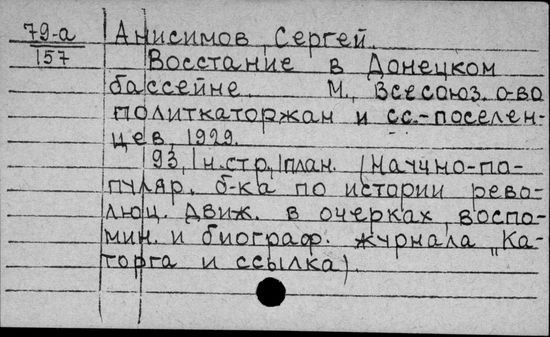 79-а
157
Анисимов, Сергей.
Восстание в Донецком
бассейне. М., Всесоюз. о-во
политкаторжан и сс.-поселен-
цев, 1929.
93, 1 н. стр., 1 план. (Научно-по-
пуляр. б-ка по истории рево-
люц. движ. в очерках, воспо-
мин. и биограф. журнала „Ка-
торга и ссылка).